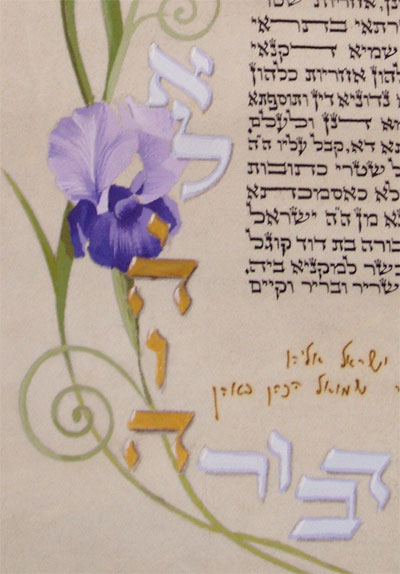 אחריות שטר
בתראי
שמיא דקנאי
אחריות כלהון
נדוניא דין ותוספתא
דנן ולעלם
דא, קבל עליו ה״ה
שטרי כתובות
כאסמכתא
מן ה״ה ישראל
בת דוד קוגל
למקניא ביה,
שריר ובריר וקיים
ישראל אליהו
שמואל הכהן
יהוה
דבורה